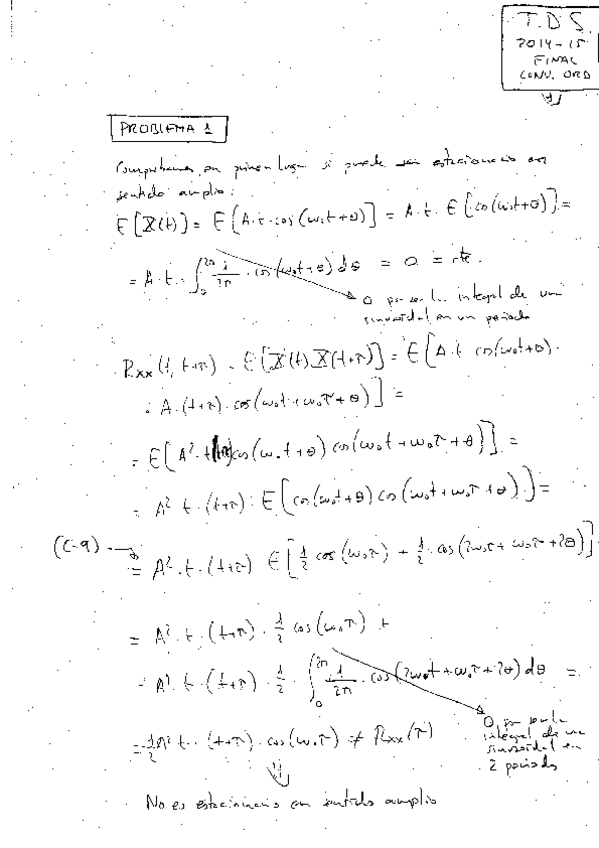 T.D.S.
2014-15
FINAL
CONV. ORD
PROBLEMA 1
Comprobamos en primer lugar si puede ser estacionario en
sentido amplio:
E[X(t)] = E[A·t·cos(ω₀t+θ)] = A·t·E[cos(ω₀t+θ)] =
= A·t·∫₀^2π 1/2π · cos(ω₀t+θ)dθ = 0 = cte.
0 por ser la integral de una
sinusoidal en un periodo
Rxx(t, t+τ) = E[X(t)X(t+τ)] = E[A·t cos(ω₀t+θ)·
· A·(t+τ)·cos(ω₀t+ω₀τ+θ)] =
= E[A²·t(t+τ)cos(ω₀t+θ)cos(ω₀t+ω₀τ+θ)] =
= A²·t·(t+τ)·E[cos(ω₀t+θ)cos(ω₀t+ω₀τ+θ)] =
(C-9) → = A²·t·(t+τ) E[1/2 cos(ω₀τ) + 1/2·cos(2ω₀t+ω₀τ+2θ)]
= A²·t·(t+τ)·1/2 cos(ω₀τ) +
· A²·t·(t+τ)·1/2·∫₀^2π 1/2π·cos(2ω₀t+ω₀τ+2θ)dθ =
0, por ser la
integral de una
sinusoidal en
2 periodos
= 1/2A²t·(t+τ)·cos(ω₀τ) ≠ Rxx(τ)
⇓
No es estacionario en sentido amplio